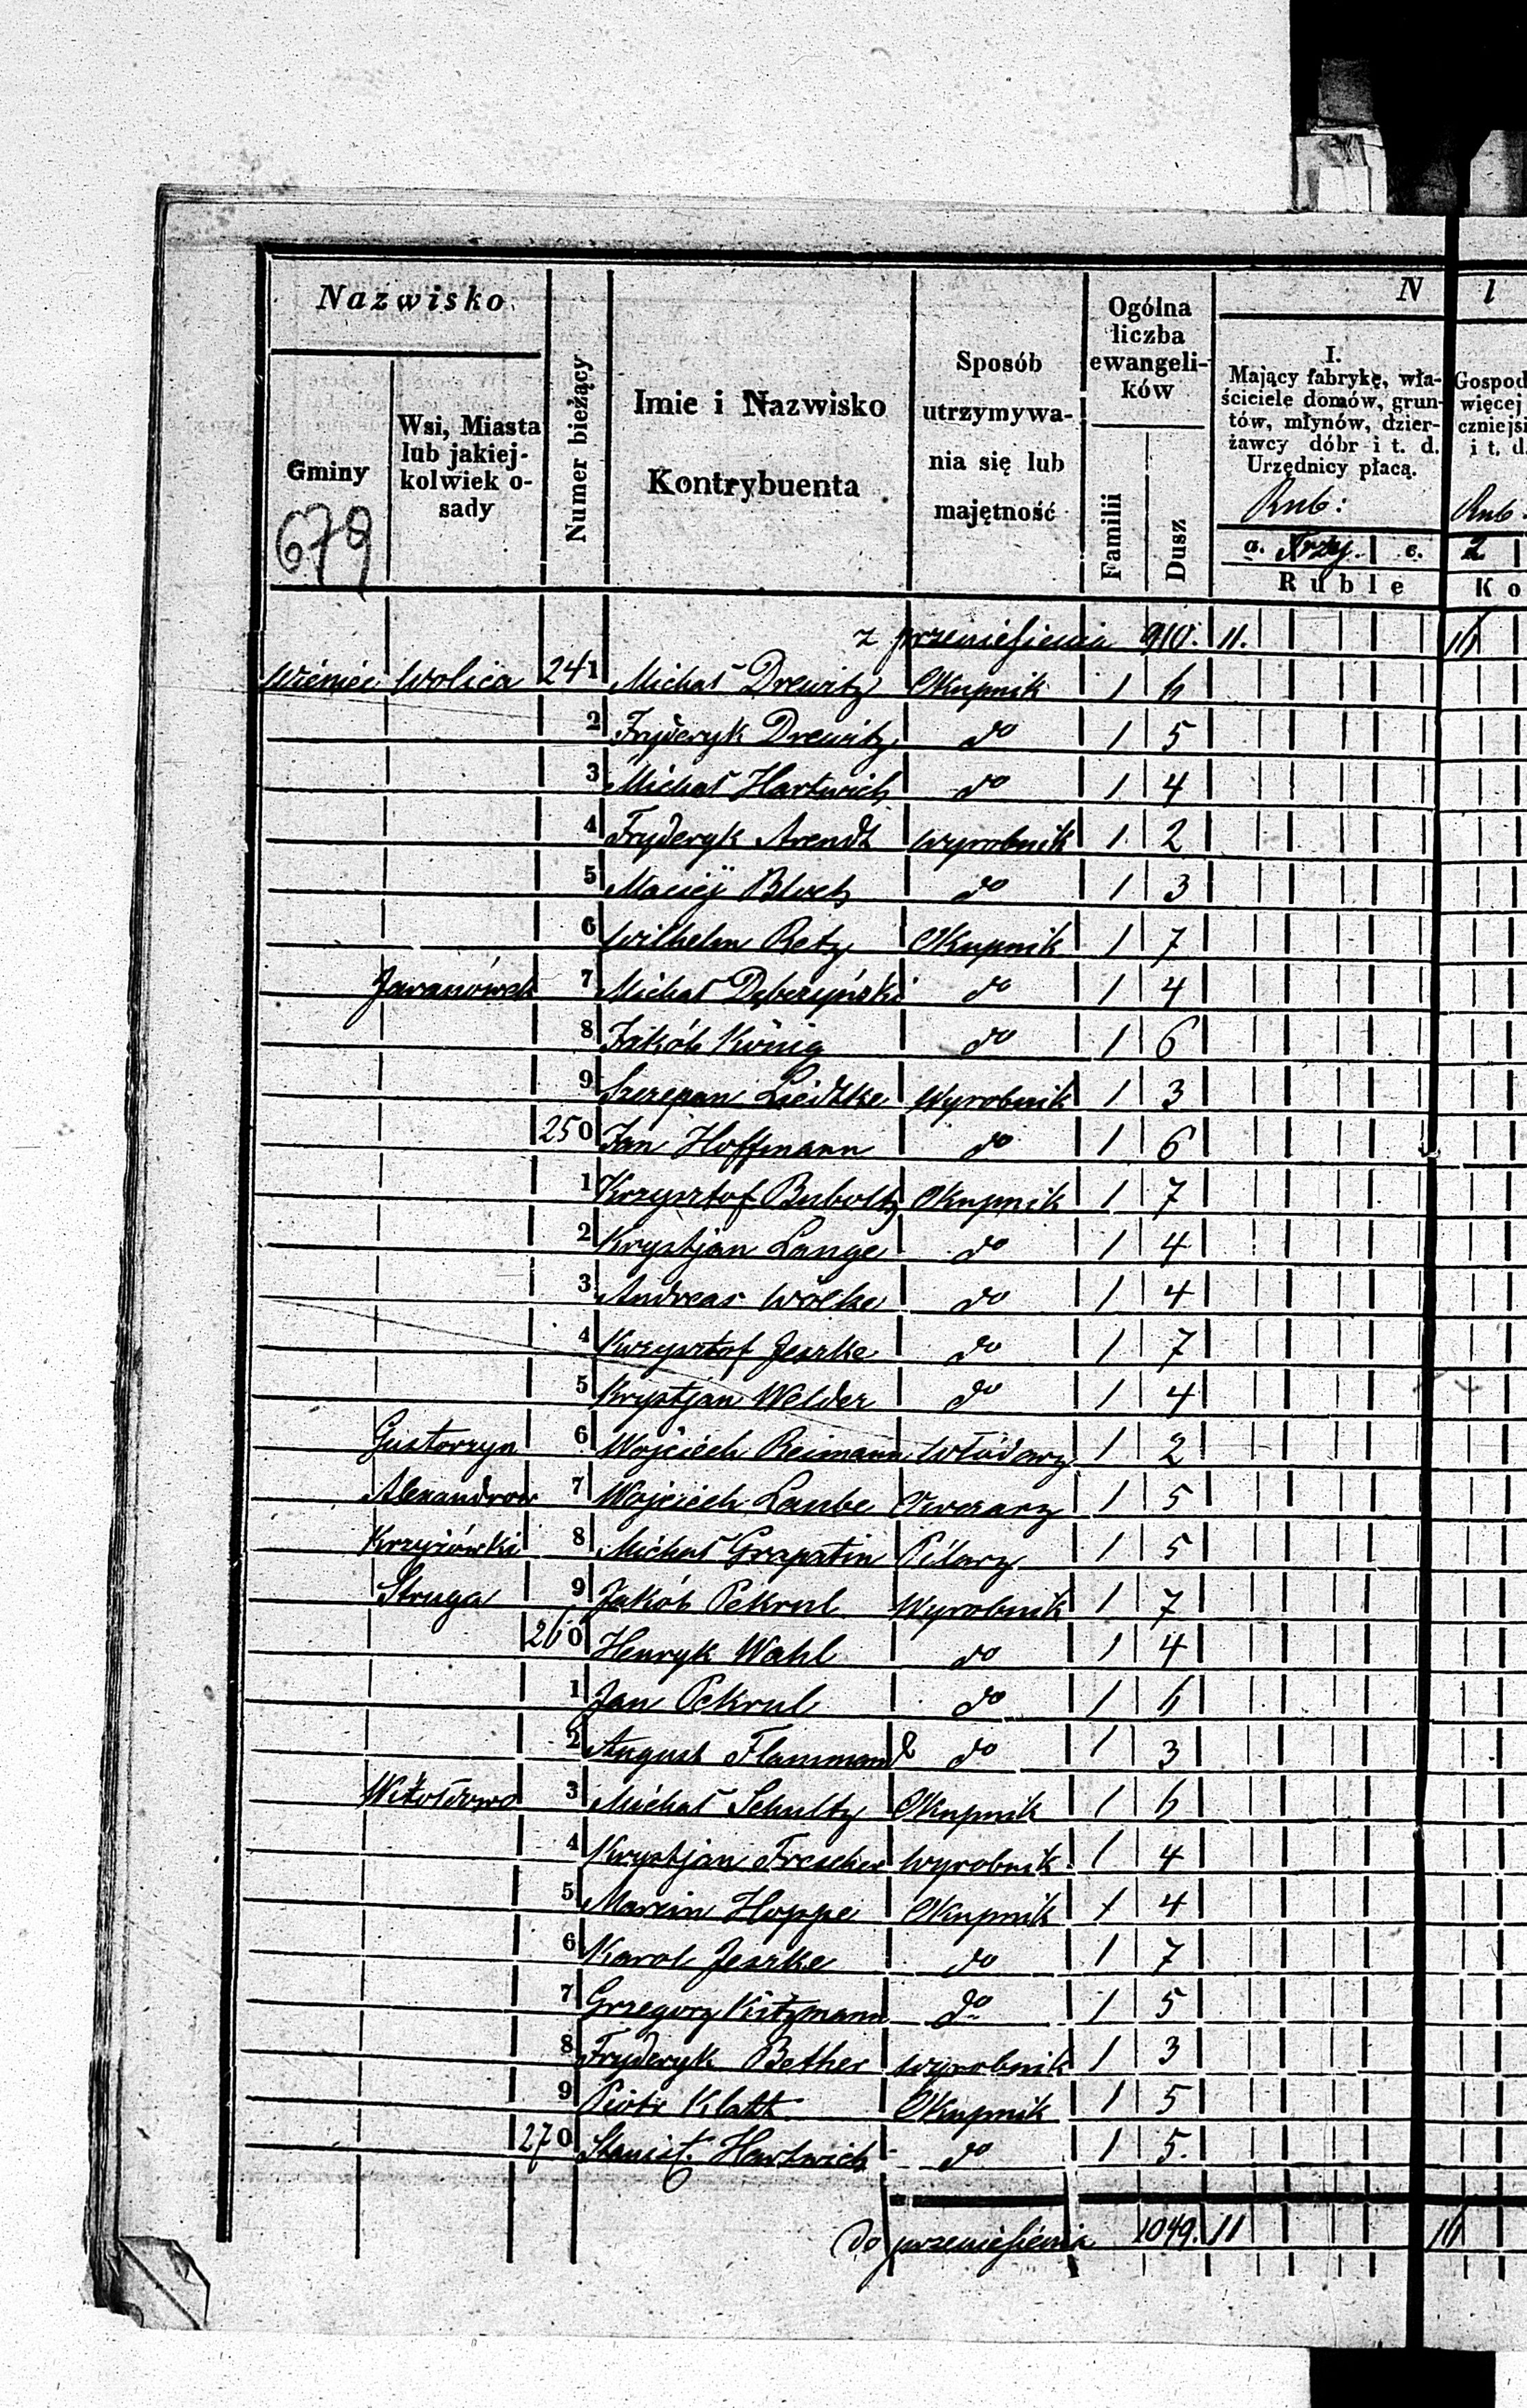 Nazwisko
Gminy
Wsi, Miasta
lub jakiej-
kolwiek o-
sady
Numer bieżący
Imie i Nazwisko
Kontrybuenta
Sposób
utrzymywa-
nia się lub
majętność
Ogólna
liczba
ewangeli-
ków
Familii
Dusz
N
I.
Mający fabrykę, wła-
ściciele domów, grun-
tów, młynów, dzier-
żawcy dóbr i t. d.
Urzędnicy płacą.
Rub:
a. Trzy. c.
Ruble
l
Gospod
więcej
czniejsi
i t. d.
Rub.
2
Ko
679
z przeniesienia 910. 11. 16
Wieniec Wolica 241 Michał Drewitz Okupnik 1 6
2 Fryderyk Drewitz do 1 5
3 Michał Hartwich do 1 4
4 Fryderyk Arendt wyrobnik 1 2
5 Maciej Bloch do 1 3
6 Wilhelm Retz Okupnik 1 7
Jaranówek 7 Michał Dębczyński do 1 4
8 Jakób König do 1 6
9 Szczepan Liedtke Wyrobnik 1 3
250 Jan Hoffmann do 1 6
1 Krzysztof Buboltz Okupnik 1 7
2 Krystjan Lange do 1 4
3 Andreas Wölke do 1 4
4 Krzysztof Jeszke do 1 7
5 Krystjan Welder do 1 4
Gustorzyn 6 Wojciech Reimann Włodarz 1 2
Alexandrow 7 Wojciech Laube Owczarz 1 5
Krzyżówki 8 Michał Grapatin Pilarz 1 5
Struga 9 Jakób Pekrul Wyrobnik 1 7
260 Henryk Wahl do 1 4
1 Jan Pekrul do 1 6
2 August Flammand do 1 3
Witoldowo 3 Michał Schultz Okupnik 1 6
4 Krystjan Frescher wyrobnik 1 4
5 Marcin Hoppe Okupnik 1 4
6 Karol Jeszke do 1 7
7 Grzegorz Kitzmann do 1 5
8 Fryderyk Bether wyrobnik 1 3
9 Piotr Klatt Okupnik 1 5
270 Stanisł. Hartwich do 1 5.
do przeniesienia 1049. 11 16